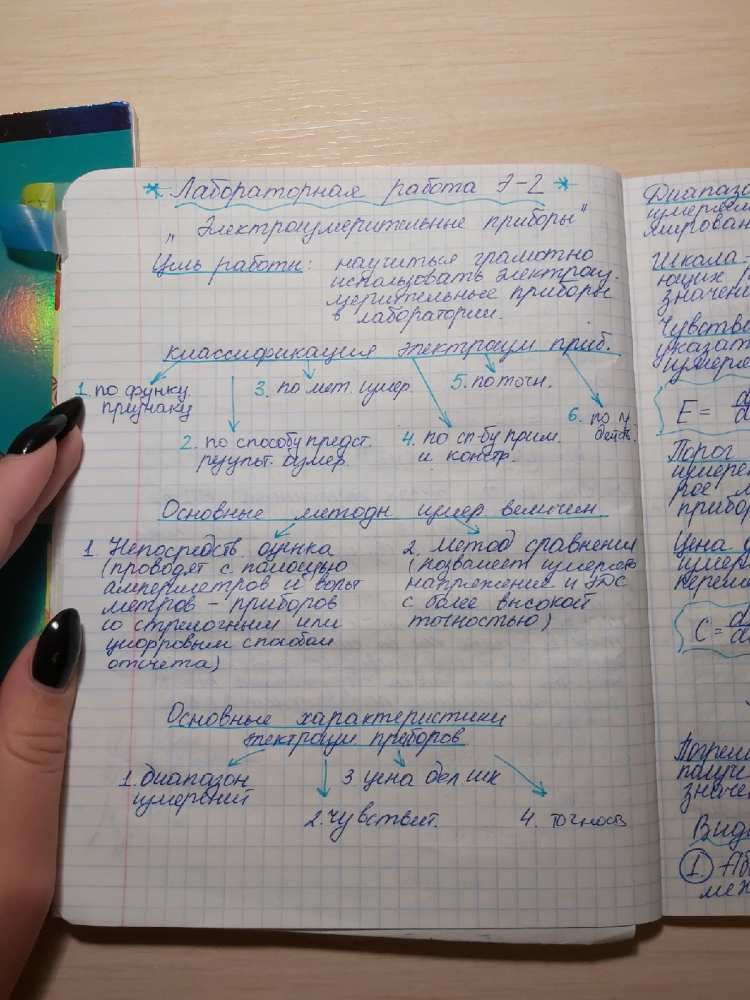 * Лабораторная работа Э-2 *
„Электроизмерительные приборы"
Цель работы: научиться грамотно
использовать электрои-
змерительные приборы
в лаборатории.
классификация электроизм приб.
1. по функц.
признаку
2. по способу предст.
результ. измер.
3. по мет. измер.
4. по сп-бу прим.
и констр.
5. по точн.
6. по
действ.
Основные методы измер величин
1. Непосредств. оценка
(проводят с помощью
амперметров и вольт
метров – приборов
со стрелочным или
цифровым способом
отсчета)
2. Метод сравнения
(позволяет измерять
напряжение и ЭДС
с более высокой
точностью)
Основные характеристики
электроизм приборов
1. диапазон
измерений
2. чувствит.
3. цена дел шк
4. точность
Диапаз
измеряем
Шкала-
ющих
значени
Чувств
указат
измеря
E =
Порог
измере
рое
прибор
Цена
измер
C =
Погреш
получ
значе
Вид
1. Аб
меж